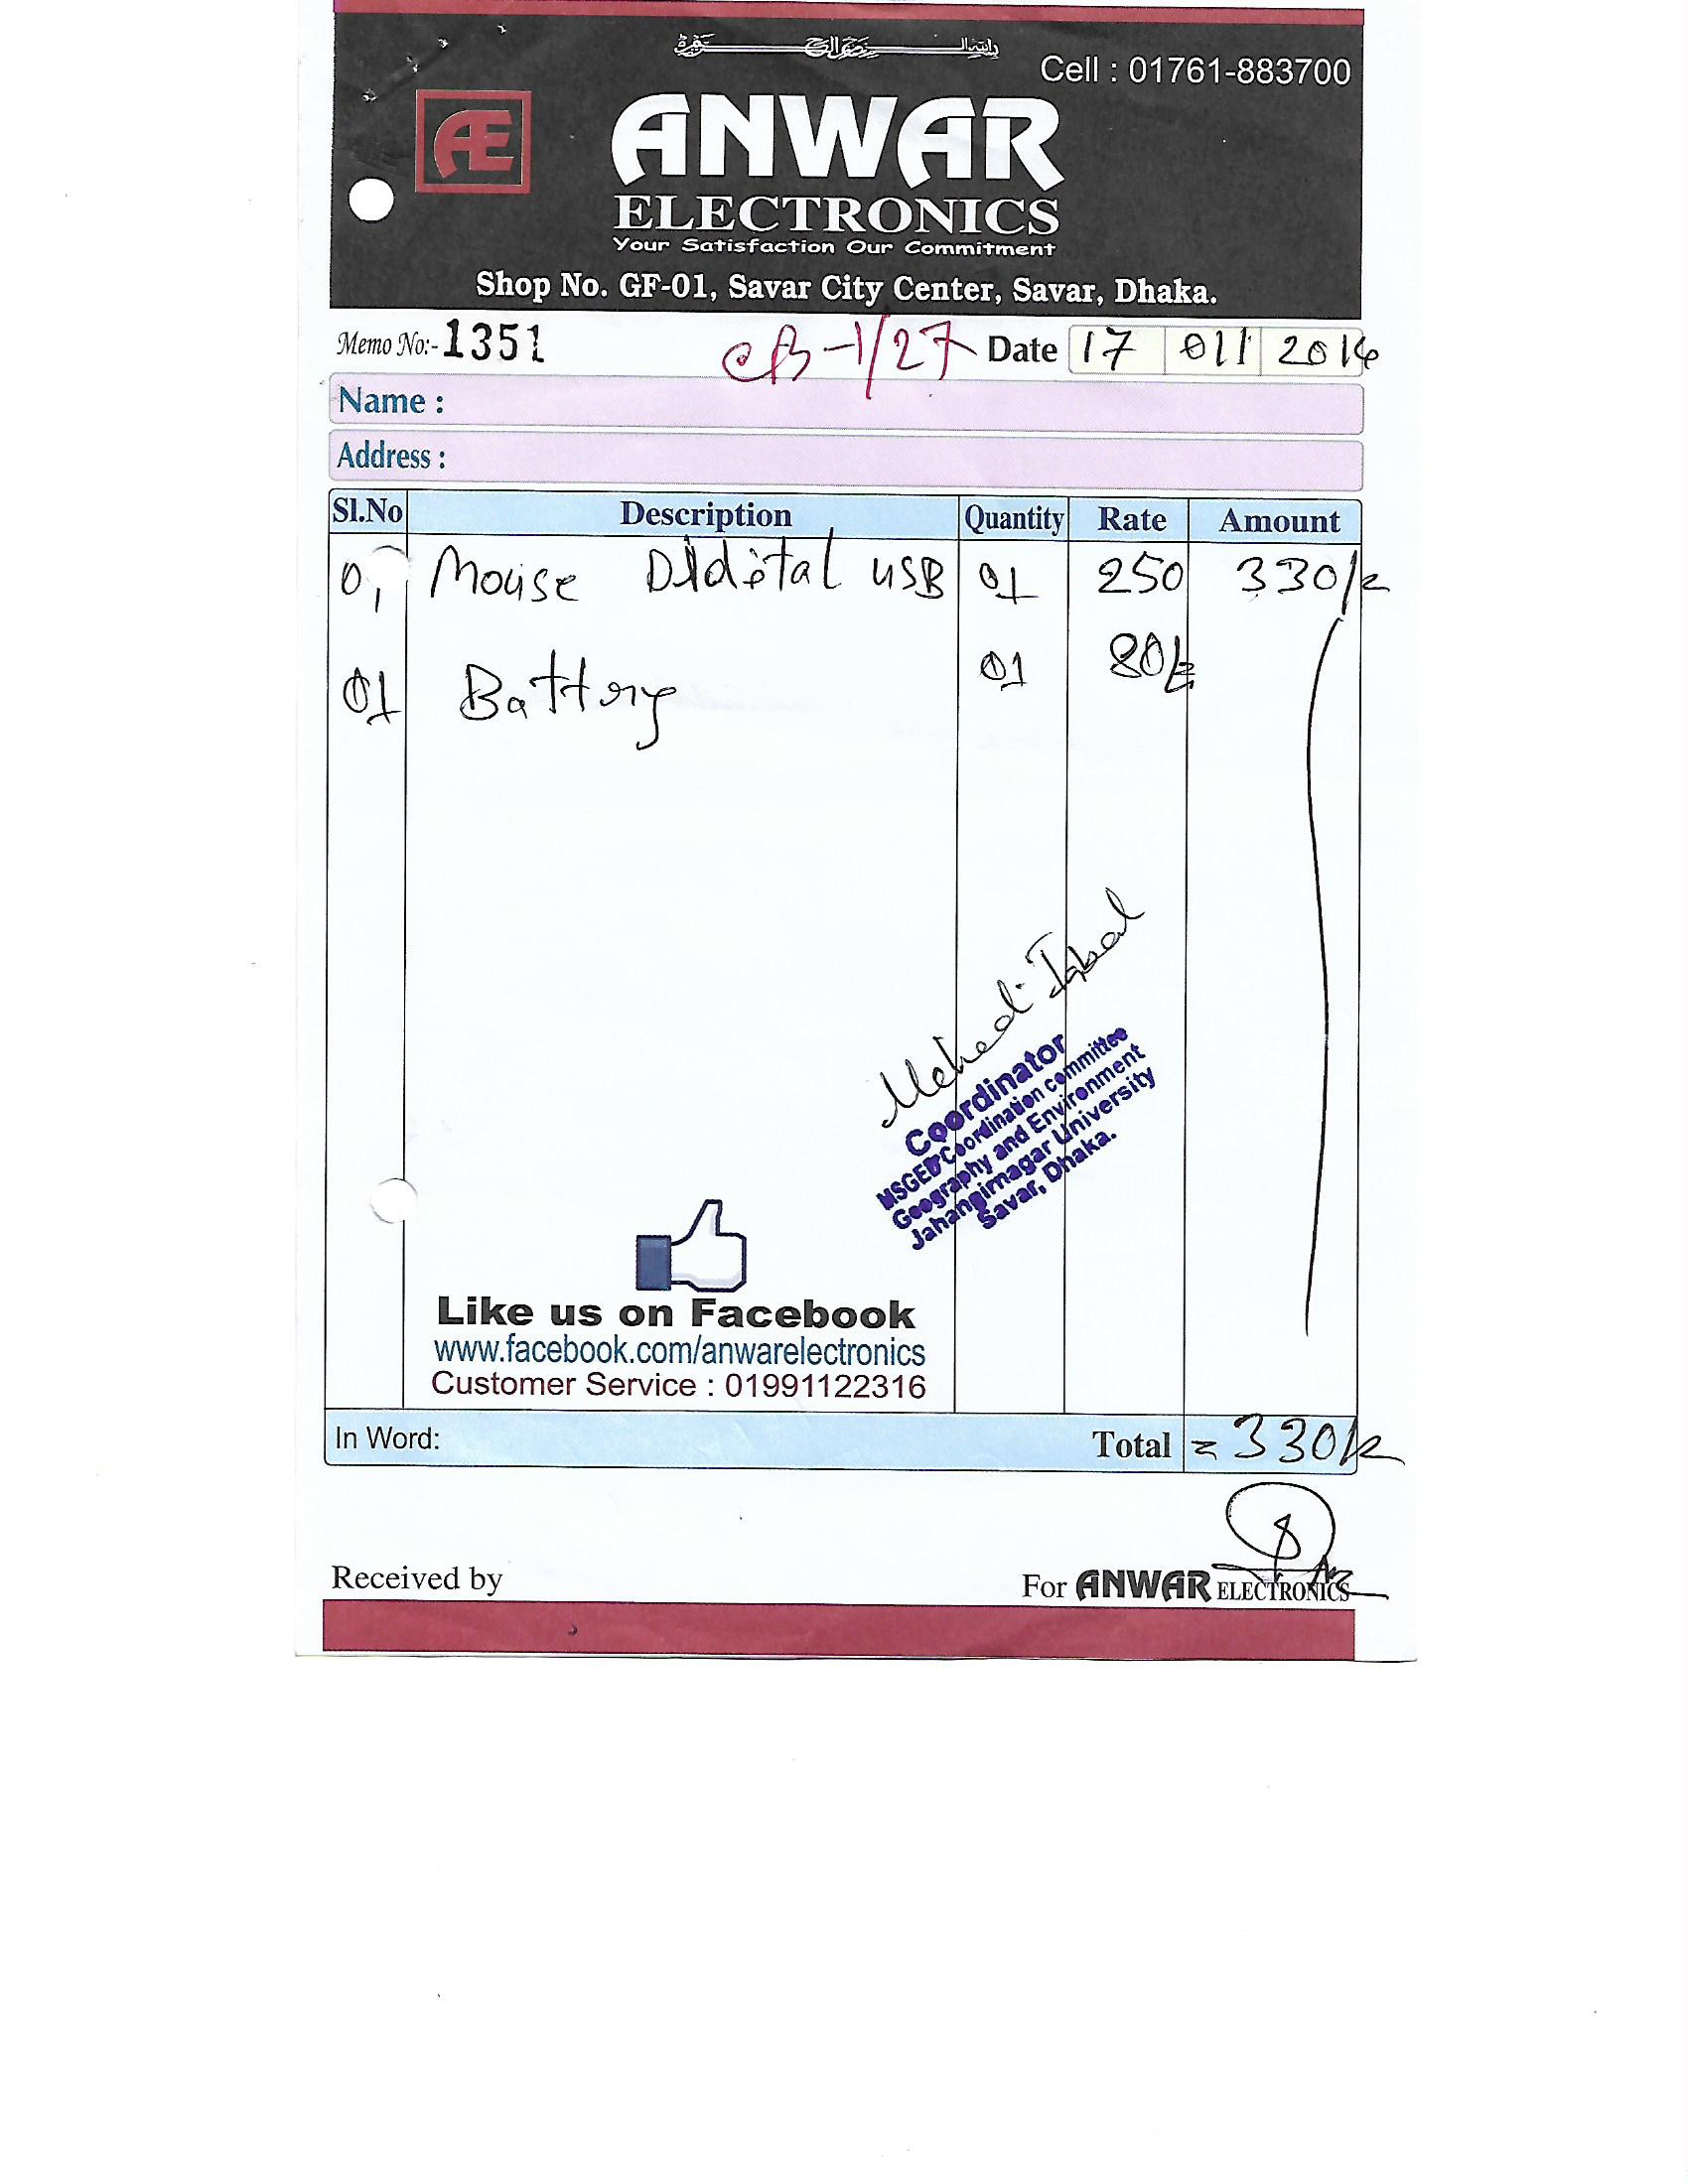 Cell : 01761-883700
Æ
ANWAR
ELECTRONICS
Your Satisfaction Our Commitment
Shop No. GF-01, Savar City Center, Savar, Dhaka.
Memo No:- 1351 CB-1/27 Date 17 011 2016
Name :
Address :
Sl.No Description Quantity Rate Amount
Mouse USB 01 250 330/=
01 Battery 01 80/=
Mehedi Iqbal
Coordinator
MSGED Coordination committee
Geography and Environment
Jahangirnagar University
Savar, Dhaka.
Like us on Facebook
www.facebook.com/anwarelectronics
Customer Service : 01991122316
In Word: Total = 330/=
Received by For ANWAR ELECTRONICS